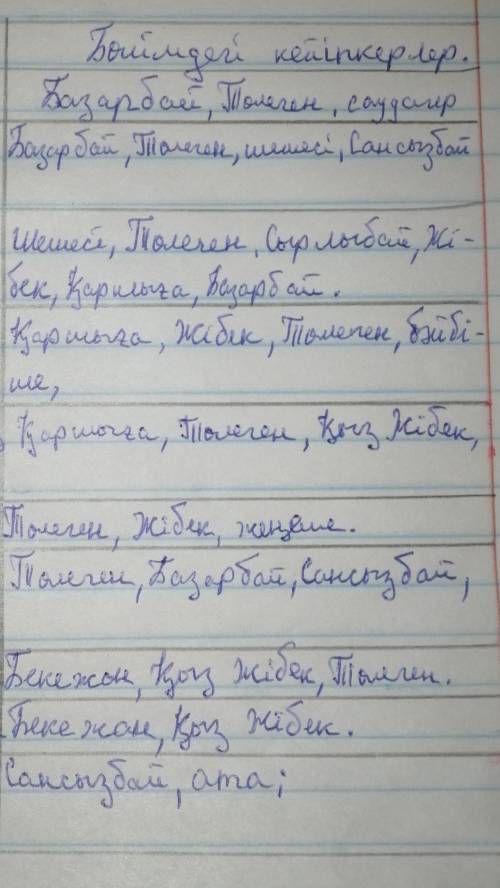 Бөлімдегі кейіпкерлер.
Базарбай, Төлеген, саудагер
Базарбай, Төлеген, шешесі, Сансызбай
Шешесі, Төлеген, Сырлыбай, Жі-
бек, Қаршыға, Базарбай.
Қаршыға, Жібек, Төлеген, бәйбі-
ше,
Қаршыға, Төлеген, Қыз Жібек,
Төлеген, Жібек, жеңеше.
Төлеген, Базарбай, Сансызбай,
Бекежан, Қыз Жібек, Төлеген.
Бекежан, Қыз Жібек.
Сансызбай, ата;